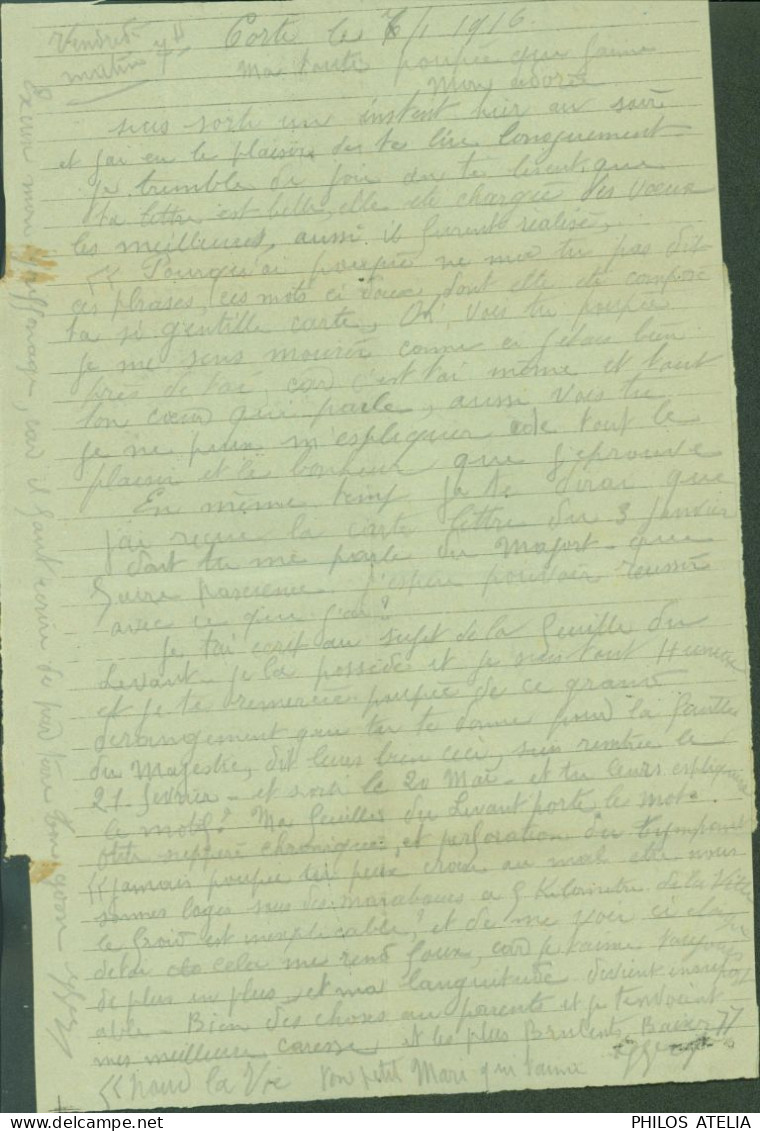 Vendredi
matin 7h
Corte le 7/1 1916.
Ma toute poupée que j'aime
Mon adorée
suis sorti un instant hier au soir
et j'ai eu le plaisir de te lire longuement
je tremble de joie en te lisant, que
ta lettre est belle, elle ete chargée des vœux
les meilleures, aussi il seront realisé,
<< Pourquoi poupée ne me tu pas dit
ces phrases, ces mots ci doux, dont elle ete composé
ta si gentille carte, Oh, vois tu poupée
je me sens mourir comme ci j'etais bien
près de toi, car c'est toi même et tout
ton cœur qui parle, aussi vois tu
je ne peux m'expliquier de tout le
plaisir et le bonheur que j'eprouve
En même temp je te dirai que
j'ai reçue la carte lettre du 3 Janvier
dont tu me parle du Majort que
faire pascience j'espere pouvoir reussir
avec ce que j'ai?
Je t'ai ecrit au sujet de la feuille du
Levant je la possède et je suis tout Heureux
et je te remercie poupée de ce grand
derangement que tu te donne pour la
du Majestre, dit leurs bien ceci, suis rentrée le
21 fevrier et sorti le 20 Mai et tu leurs expliquera
le motif? Ma feuilles du Levant porte le mot.
otite suppuré chronique, et perforation du tympant
<< jamais poupée tu peux croire au mal etre nous
sommes loger sous des marabouts a 5 Kilometre de la Ville
le froid est inexplicable? et de me voir ci eloigné
de toi cela me rend foux, car je t'aime toujours
de plus en plus, et ma languitude devient insuport
able - Bien des choses au parents et je t'envoient
mes meilleure caresse, et les plus Brulents, Baiser >>
<< pour la Vie ton petit Mari qui t'aime
Excuse mon griffonage, car il faut ecrire de par terre